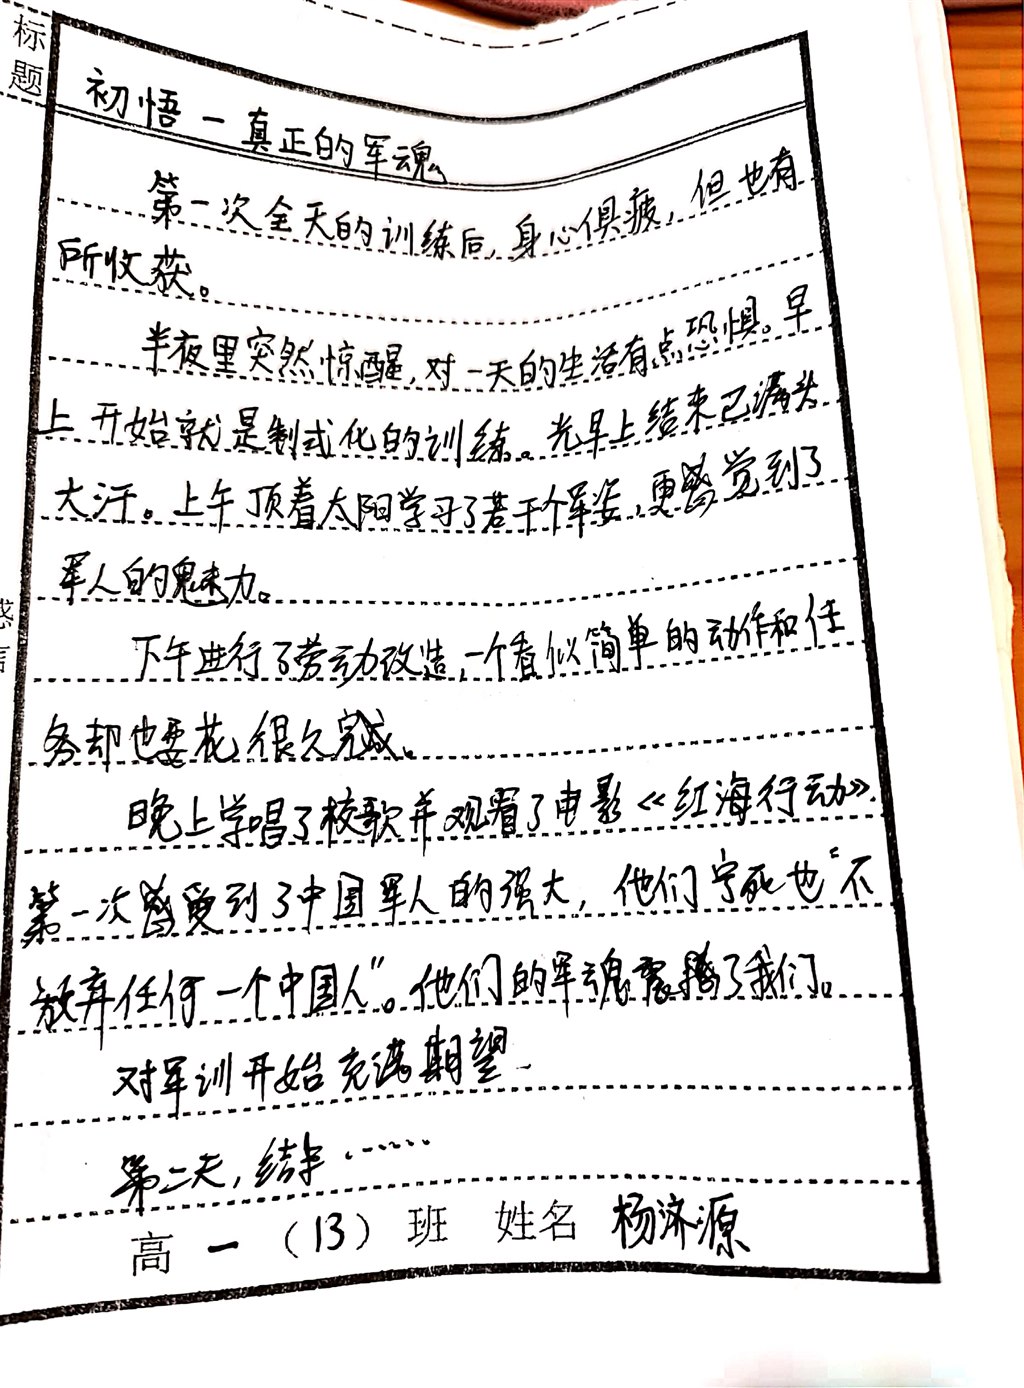 标题
初悟一真正的军魂
第一次全天的训练后,身心俱疲,但也有
所收获。
半夜里突然惊醒,对一天的生活有点恐惧。早
上开始就是制式化的训练。光早上结束已满头
大汗。上午顶着太阳学习了若干个军姿,更感觉到了
军人的魅力。
下午进行了劳动改造,一个看似简单的动作和任
务却也要花很久完成。
晚上学唱了校歌并观看了电影《红海行动》.
第一次感受到了中国军人的强大,他们宁死也“不
放弃任何一个中国人”。他们的军魂震撼了我们。
对军训开始充满期望.
第二天,结束……
高一(13)班 姓名 杨济源